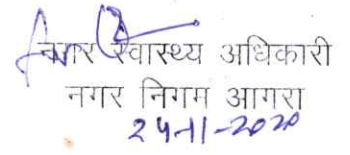 नगर स्वास्थ्य अधिकारी
नगर निगम आगरा
24-11-2020